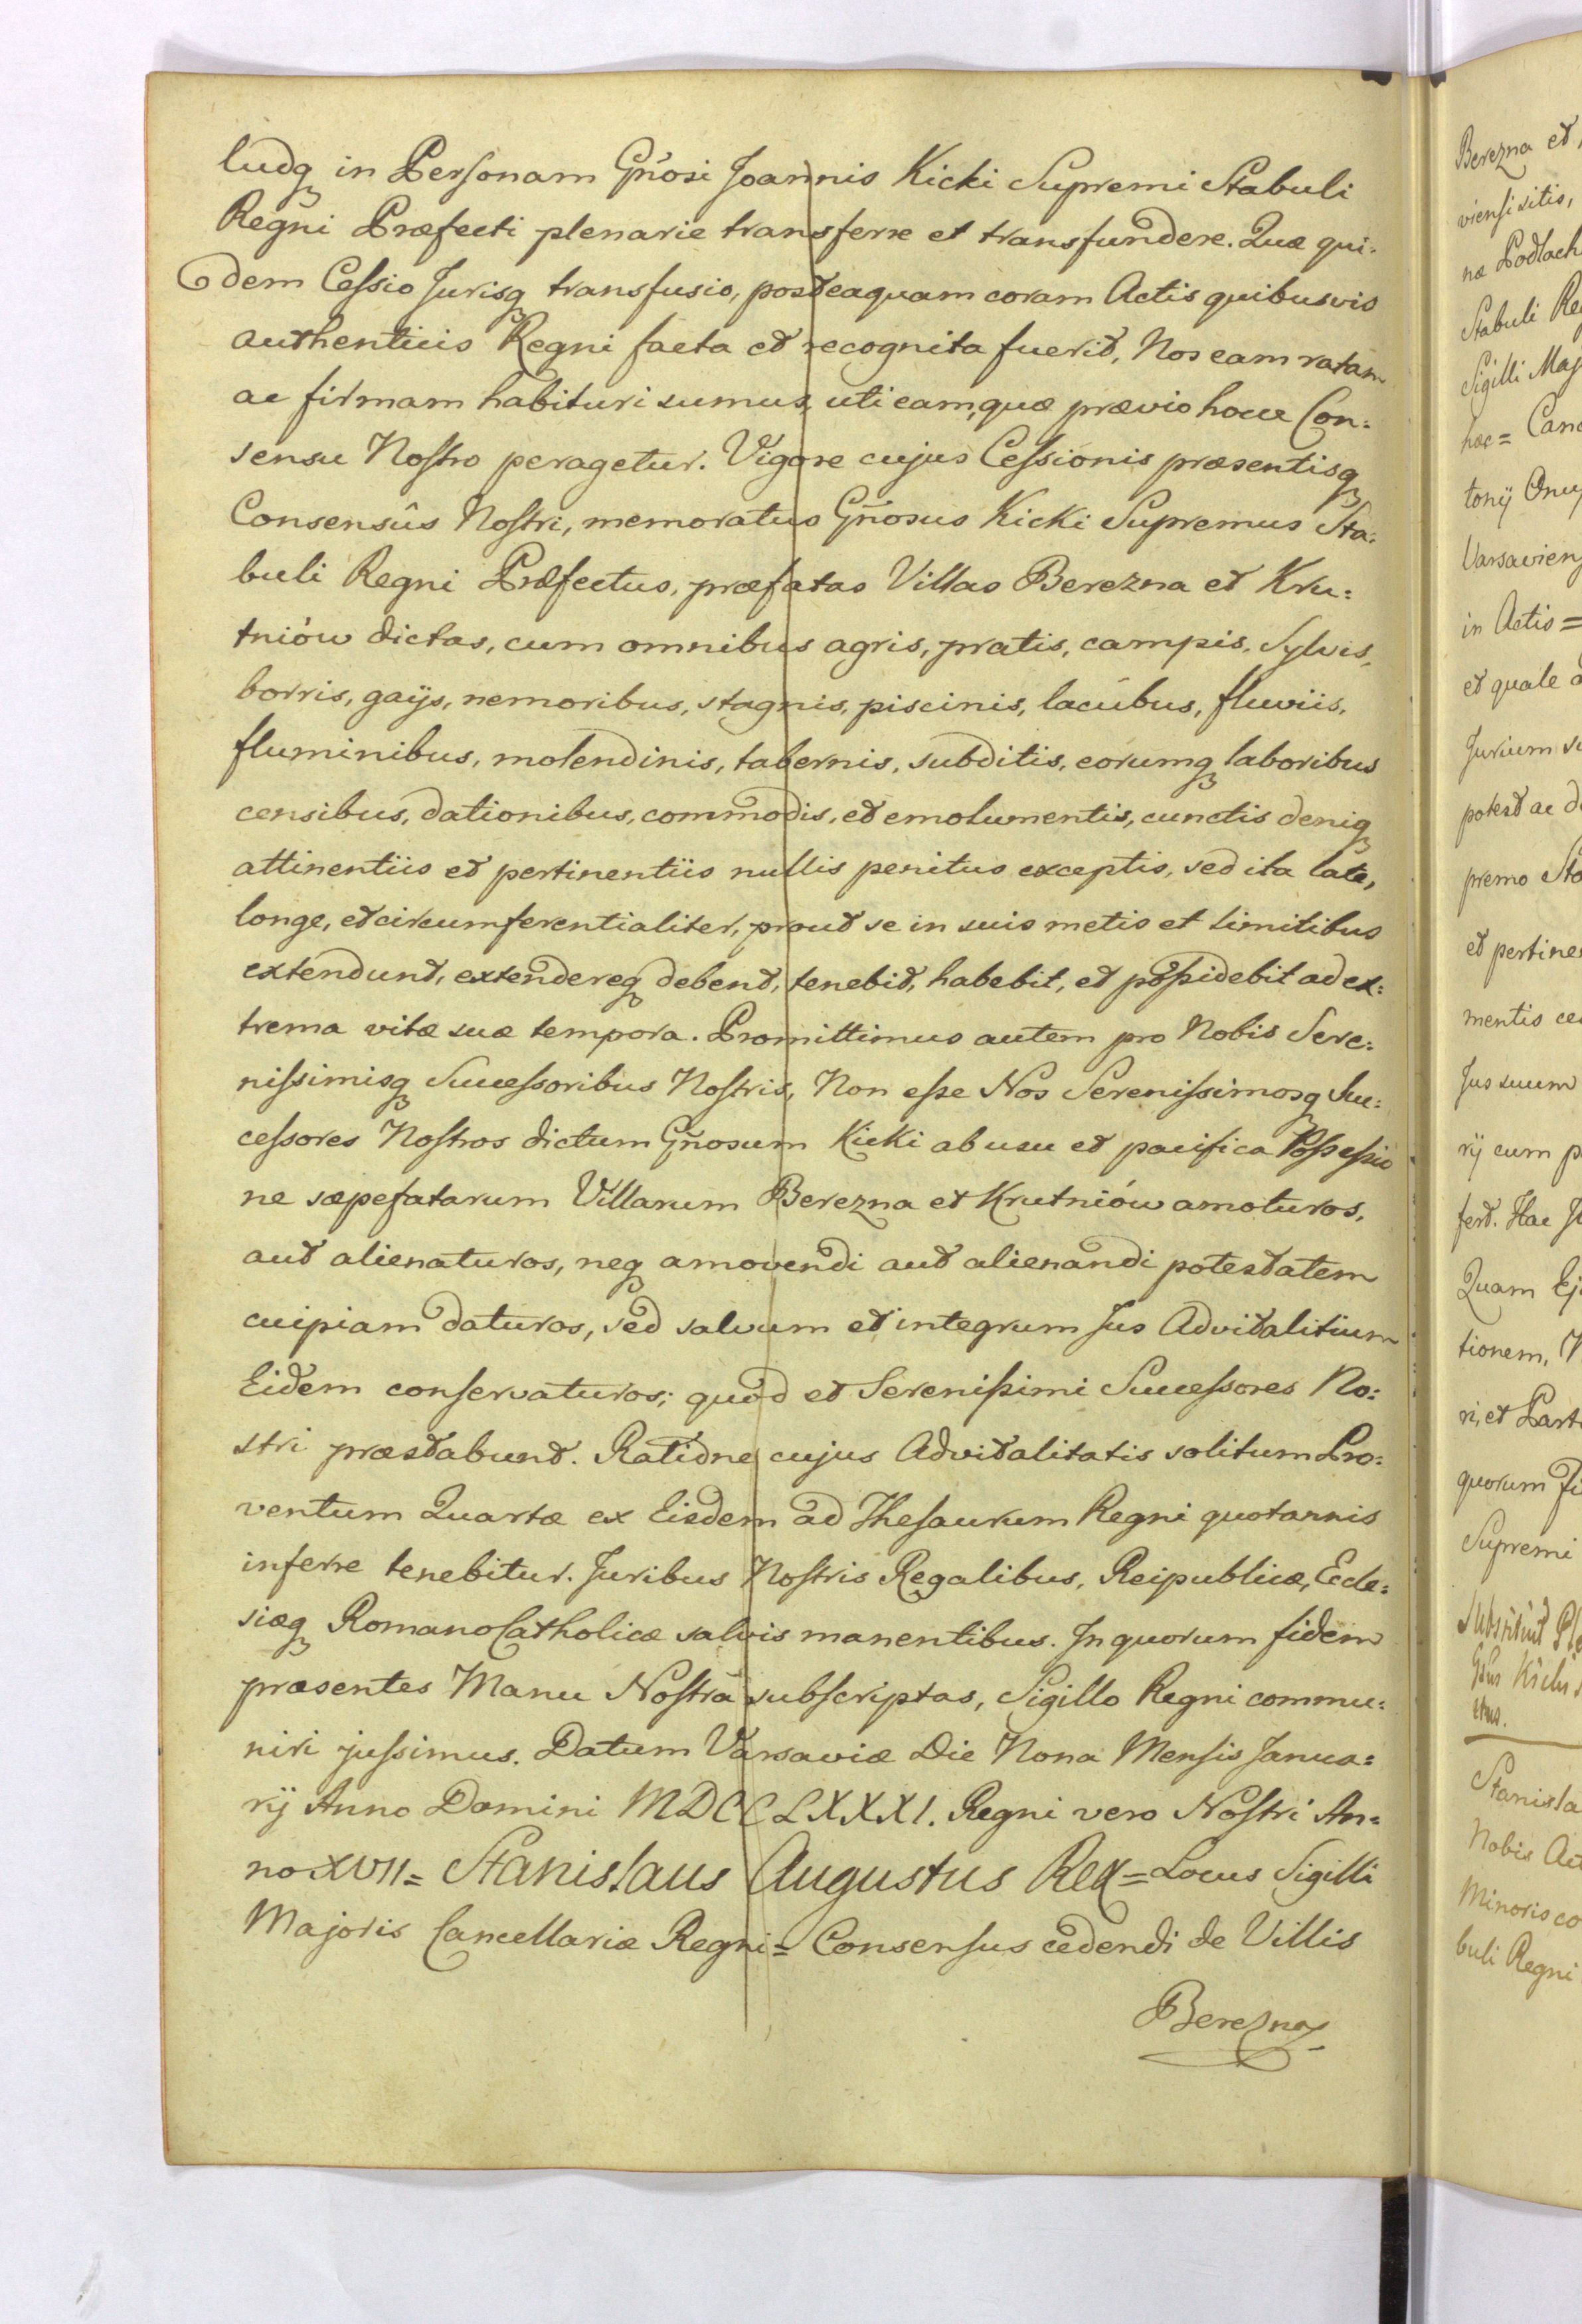 ludq in Personam Gñosi Joannis Kicki Supremi Stabuli
Regni Præfecti plenarie transferre et transfundere. Quæ qui=
dem Cessio Jurisq transfusio, posteaquam coram Actis quibusvis
authenticis Regni facta et recognita fuerit, Nos eam ratam
ac firmam habituri sumus, uti eam, quæ prævio hocce Con=
sensu Nostro peragetur. Vigore cujus Cessionis præsentisq
Consensûs Nostri, memoratus Gñosus Kicki Supremus Sta=
buli Regni Præfectus, præfatas Villas Berezna et Kru=
tniów dictas, cum omnibus agris, pratis, campis, Sylvis,
borris, gaijs, nemoribus, stagnis, piscinis, lacubus, fluviis,
fluminibus, molendinis, tabernis, subditis, eorumq laboribus
censibus, dationibus, commodis, et emolumentis, cunctis deniq
attinentiis et pertinentiis nullis penitus exceptis, sed ita late,
longe, et circumferentialiter, prout se in suis metis et limitibus
extendunt, extendereq debent, tenebit, habebit, et possidebit ad ex=
trema vitæ suæ tempora. Promittimus autem pro Nobis Sere=
nissimisq Successoribus Nostris, Non esse Nos Serenissimosq Suc=
cessores Nostros dictum Gñosum Kicki ab usu et pacifica Possessio
ne sæpefatarum Villarum Berezna et Krutniów amoturos,
aut alienaturos, neq amovendi aut alienandi potestatem
cuipiam daturos, sed salvum et integrum Jus Advitalitium
Eidem conservaturos; quod et Serenissimi Successores No=
stri præstabunt. Ratione cujus Advitalitatis solitum Pro=
ventum Quartæ ex Eisdem ad Thesaurum Regni quotannis
inferre tenebitur. Juribus Nostris Regalibus, Reipublicæ, Eccle=
siæq Romano Catholicæ salvis manentibus. In quorum fidem
præsentes Manu Nostra subscriptas, Sigillo Regni commu=
niri jussimus. Datum Varsaviæ Die Nona Mensis Janua=
rij Anno Domini MDCCLXXXI. Regni vero Nostri An=
no XVII= Stanislaus Augustus Rex= Locus Sigilli
Majoris Cancellariæ Regni= Consensus cedendi de Villis
Berezna
Berezna et
viensi sitis,
næ Podlach
Stabuli Re
Sigilli Maj
hæc= Canc
tonij Onu
Varsavien
in Actis=
et quale
Jurium su
potest ac d
premo Sta
et pertine
mentis ce
Jus suum
rij cum p
fert. Hac J
Quam Ej
tionem,
ri, et Part
quorum fi
Supremi
Stanisla
Nobis Ac
Minoris co
buli Regni